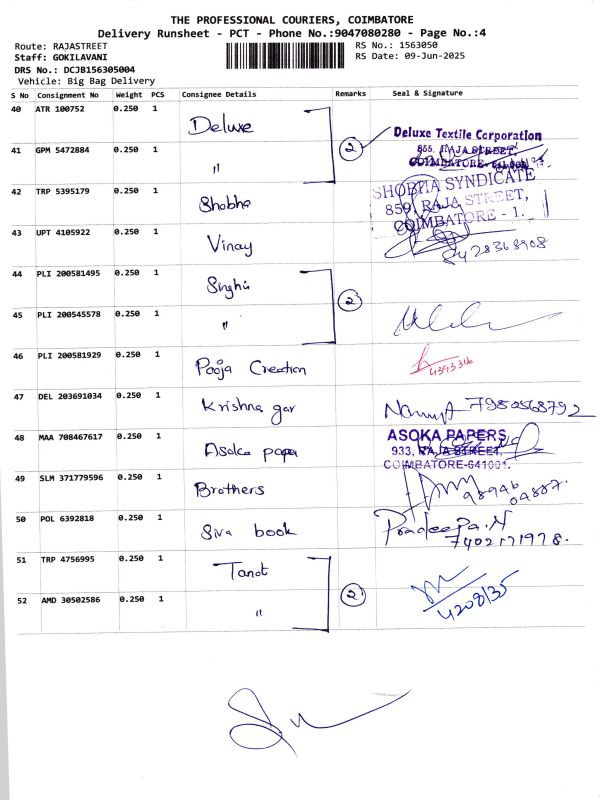 THE PROFESSIONAL COURIERS, COIMBATORE
Delivery Runsheet - PCT - Phone No.:9047080280 - Page No.:4
Route: RAJASTREET
RS No.: 1563050
Staff: GOKILAVANI
RS Date: 09-Jun-2025
DRS No.: DCJB156305004
Vehicle: Big Bag Delivery
S No Consignment No Weight PCS Consignee Details Remarks Seal & Signature
40 ATR 100752 0.250 1 Deluxe
2 Deluxe Textile Corporation
855, RAJA STREET,
COIMBATORE
41 GPM 5472884 0.250 1 "
42 TRP 5395179 0.250 1 Shobha
SHOBHA SYNDICATE
859, RAJA STREET,
COIMBATORE - 1.
43 UPT 4105922 0.250 1 Vinay
44 PLI 200581495 0.250 1 Singhi
2
45 PLI 200545578 0.250 1 "
46 PLI 200581929 0.250 1 Pooja Creation
47 DEL 203691034 0.250 1 Krishna gar 7980568792
48 MAA 708467617 0.250 1 Asoka papa
ASOKA PAPERS
933, RAJA STREET,
COIMBATORE-641001.
49 SLM 371779596 0.250 1 Brothers
50 POL 6392818 0.250 1 Siva book Pradeepa.N
7402171978.
51 TRP 4756995 0.250 1
2
52 AMD 30502586 0.250 1 "